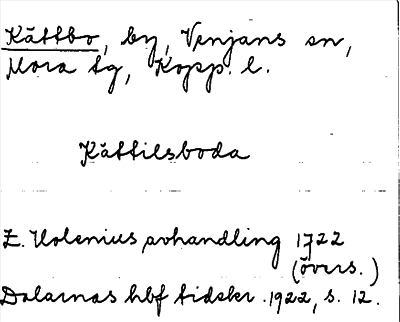 Kättbo, by, Venjans sn,
Mora tg, Kopp. l.
Kättilsboda
Z. Holenius avhandling 1722
(övers.)
Dalarnas hbf tidskr. 1922, s. 12.